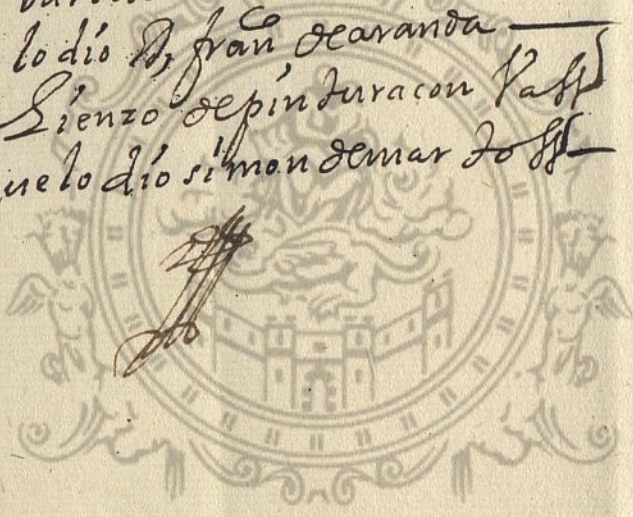 lo dio D, fran^co de aranda
Lienzo de pintura con
ue lo dio simon de mar tos